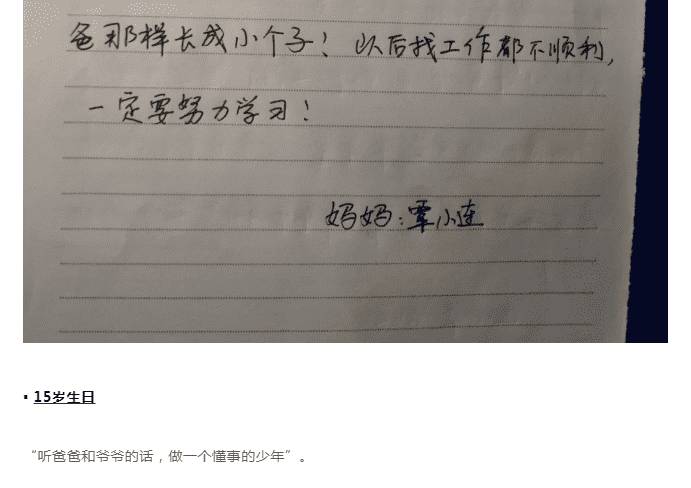 爸那样长成小个子！以后找工作都不顺利，
一定要努力学习！
妈妈：覃小连
▪ 15岁生日
“听爸爸和爷爷的话，做一个懂事的少年”。